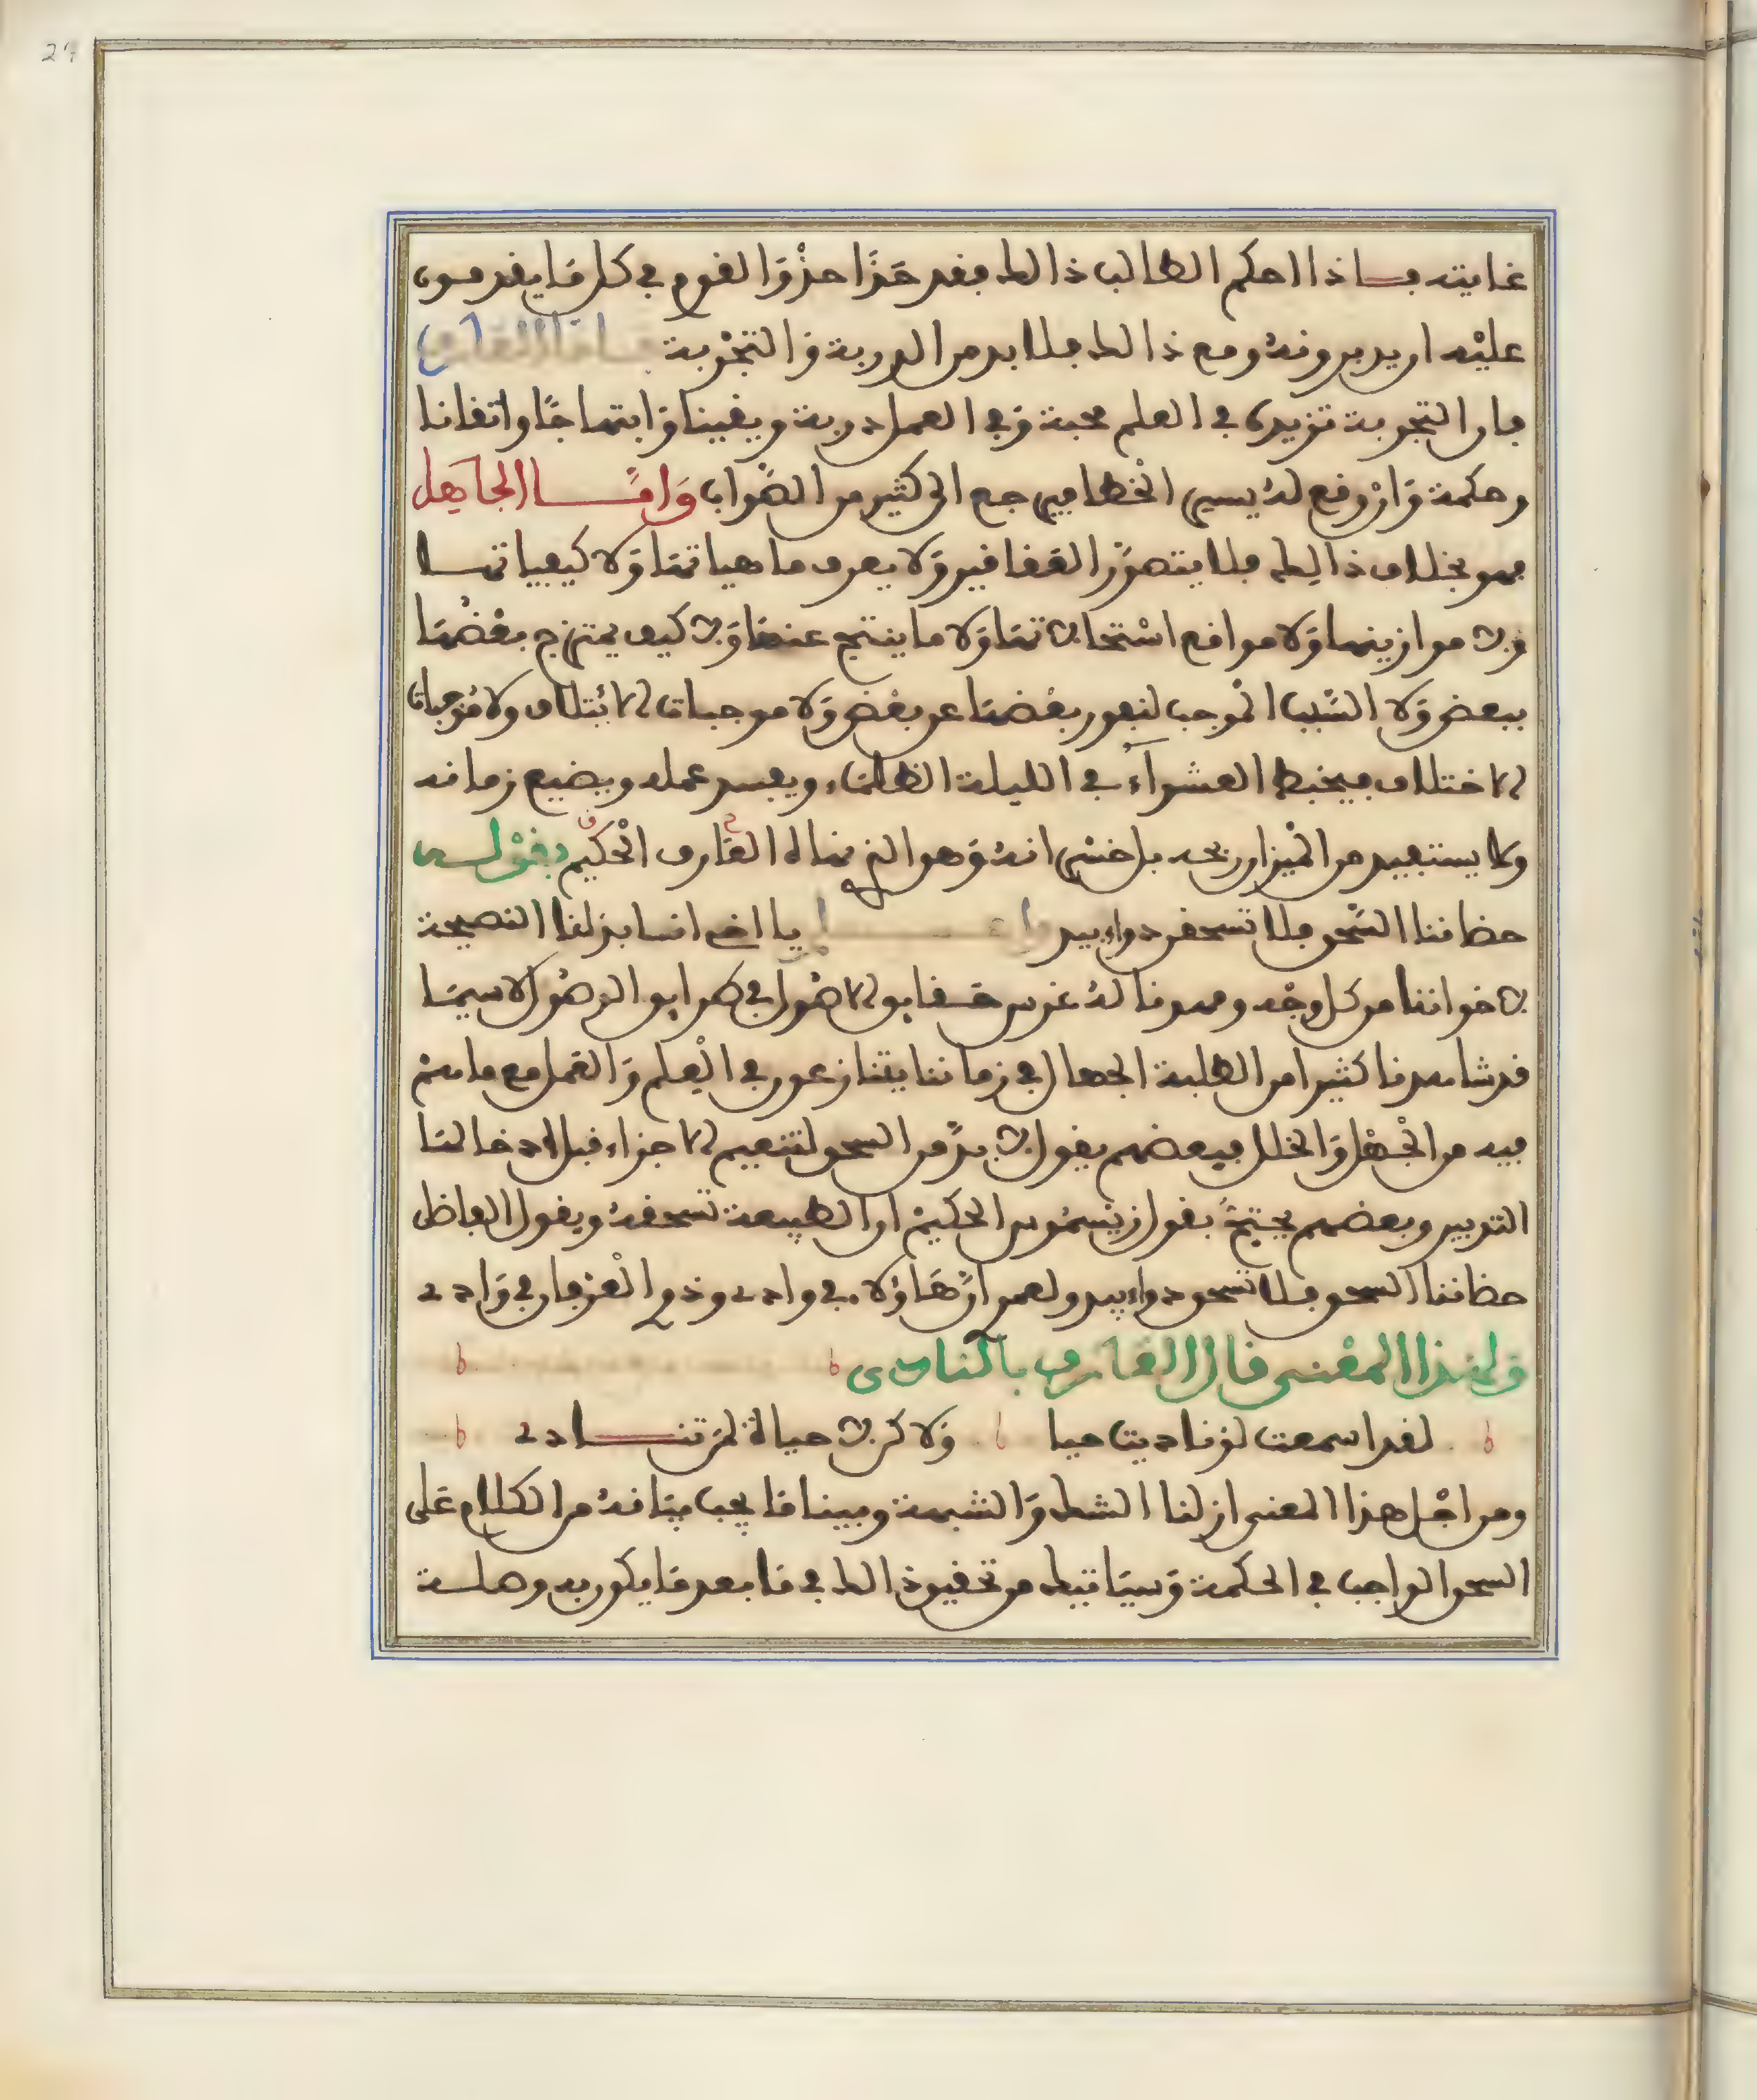 غايته فاذا احكم الطالب ذالك فقد حذا حذو القوم في كل ما يقدمون
عليه او يدبرونه ومع ذالك فلا بد من الدربة والتجربة
فان التجربة تزيدك في العلم محبة وفي العمل دربة ويقينا وابتهاجا واتقانا
وحكمة وان وقع له يسير الخطا فيرجع الى كثير من الصواب وامّا الجاهل
فهو بخلاف ذالك فلا يتصور العقاقير ولا يعرف ماهياتها ولا كيفياتها
ولا موازينها ولا مواقع استحالاتها ولا ما ينتج عنها ولا كيف يمتزج بعضها
ببعض ولا السبب الموجب لنفور بعضها عن بعض ولا موجبات الائتلاف ولا موجبات
الاختلاف فيخبط العشواء في الليلة الظلماء ويفسد عمله ويضيع زمانه
ولا يستفيد من الميزان ربحه بل خسرانه وهو الذي نهاه العارف الحكيم بقوله
حضاننا السحق فلا تسحقن دواء بيد يا اخي انما بذلنا النصيحة
لاخواننا من كل وجه ومهدنا له غرس حقايق الاصول في طرايق الوصول لا سيما
قد شاهدنا كثيرا من الطلبة الجهال في زماننا يتنازعون في العلم والعمل مع ما هم
فيه من الجهل والخلل فبعضهم يقول لا بد من السحق لتنعيم الاجزاء قبل ادخالها
التدبير وبعضهم يحتج بقول زيسموس الحكيم ان الطبيعة تسحقه ويقول الفاضل
حضاننا السحق فلا تسحق دواء بيد ولعمري ان هاؤلاء في وادي وذوا العرفان في وادي
ولهذا المعنى قال العارف بالنادي
لقد اسمعت لو ناديت حيا ولاكن لا حياة لمن تنادي
ومن اجل هذا المعنى ازلنا الشك والشبهة وبينا ما يجب بيانه من الكلام على
السحق الواجب في الحكمة وسياتيك من تحقيق ذالك في ما بعد ما يكون به وصلة